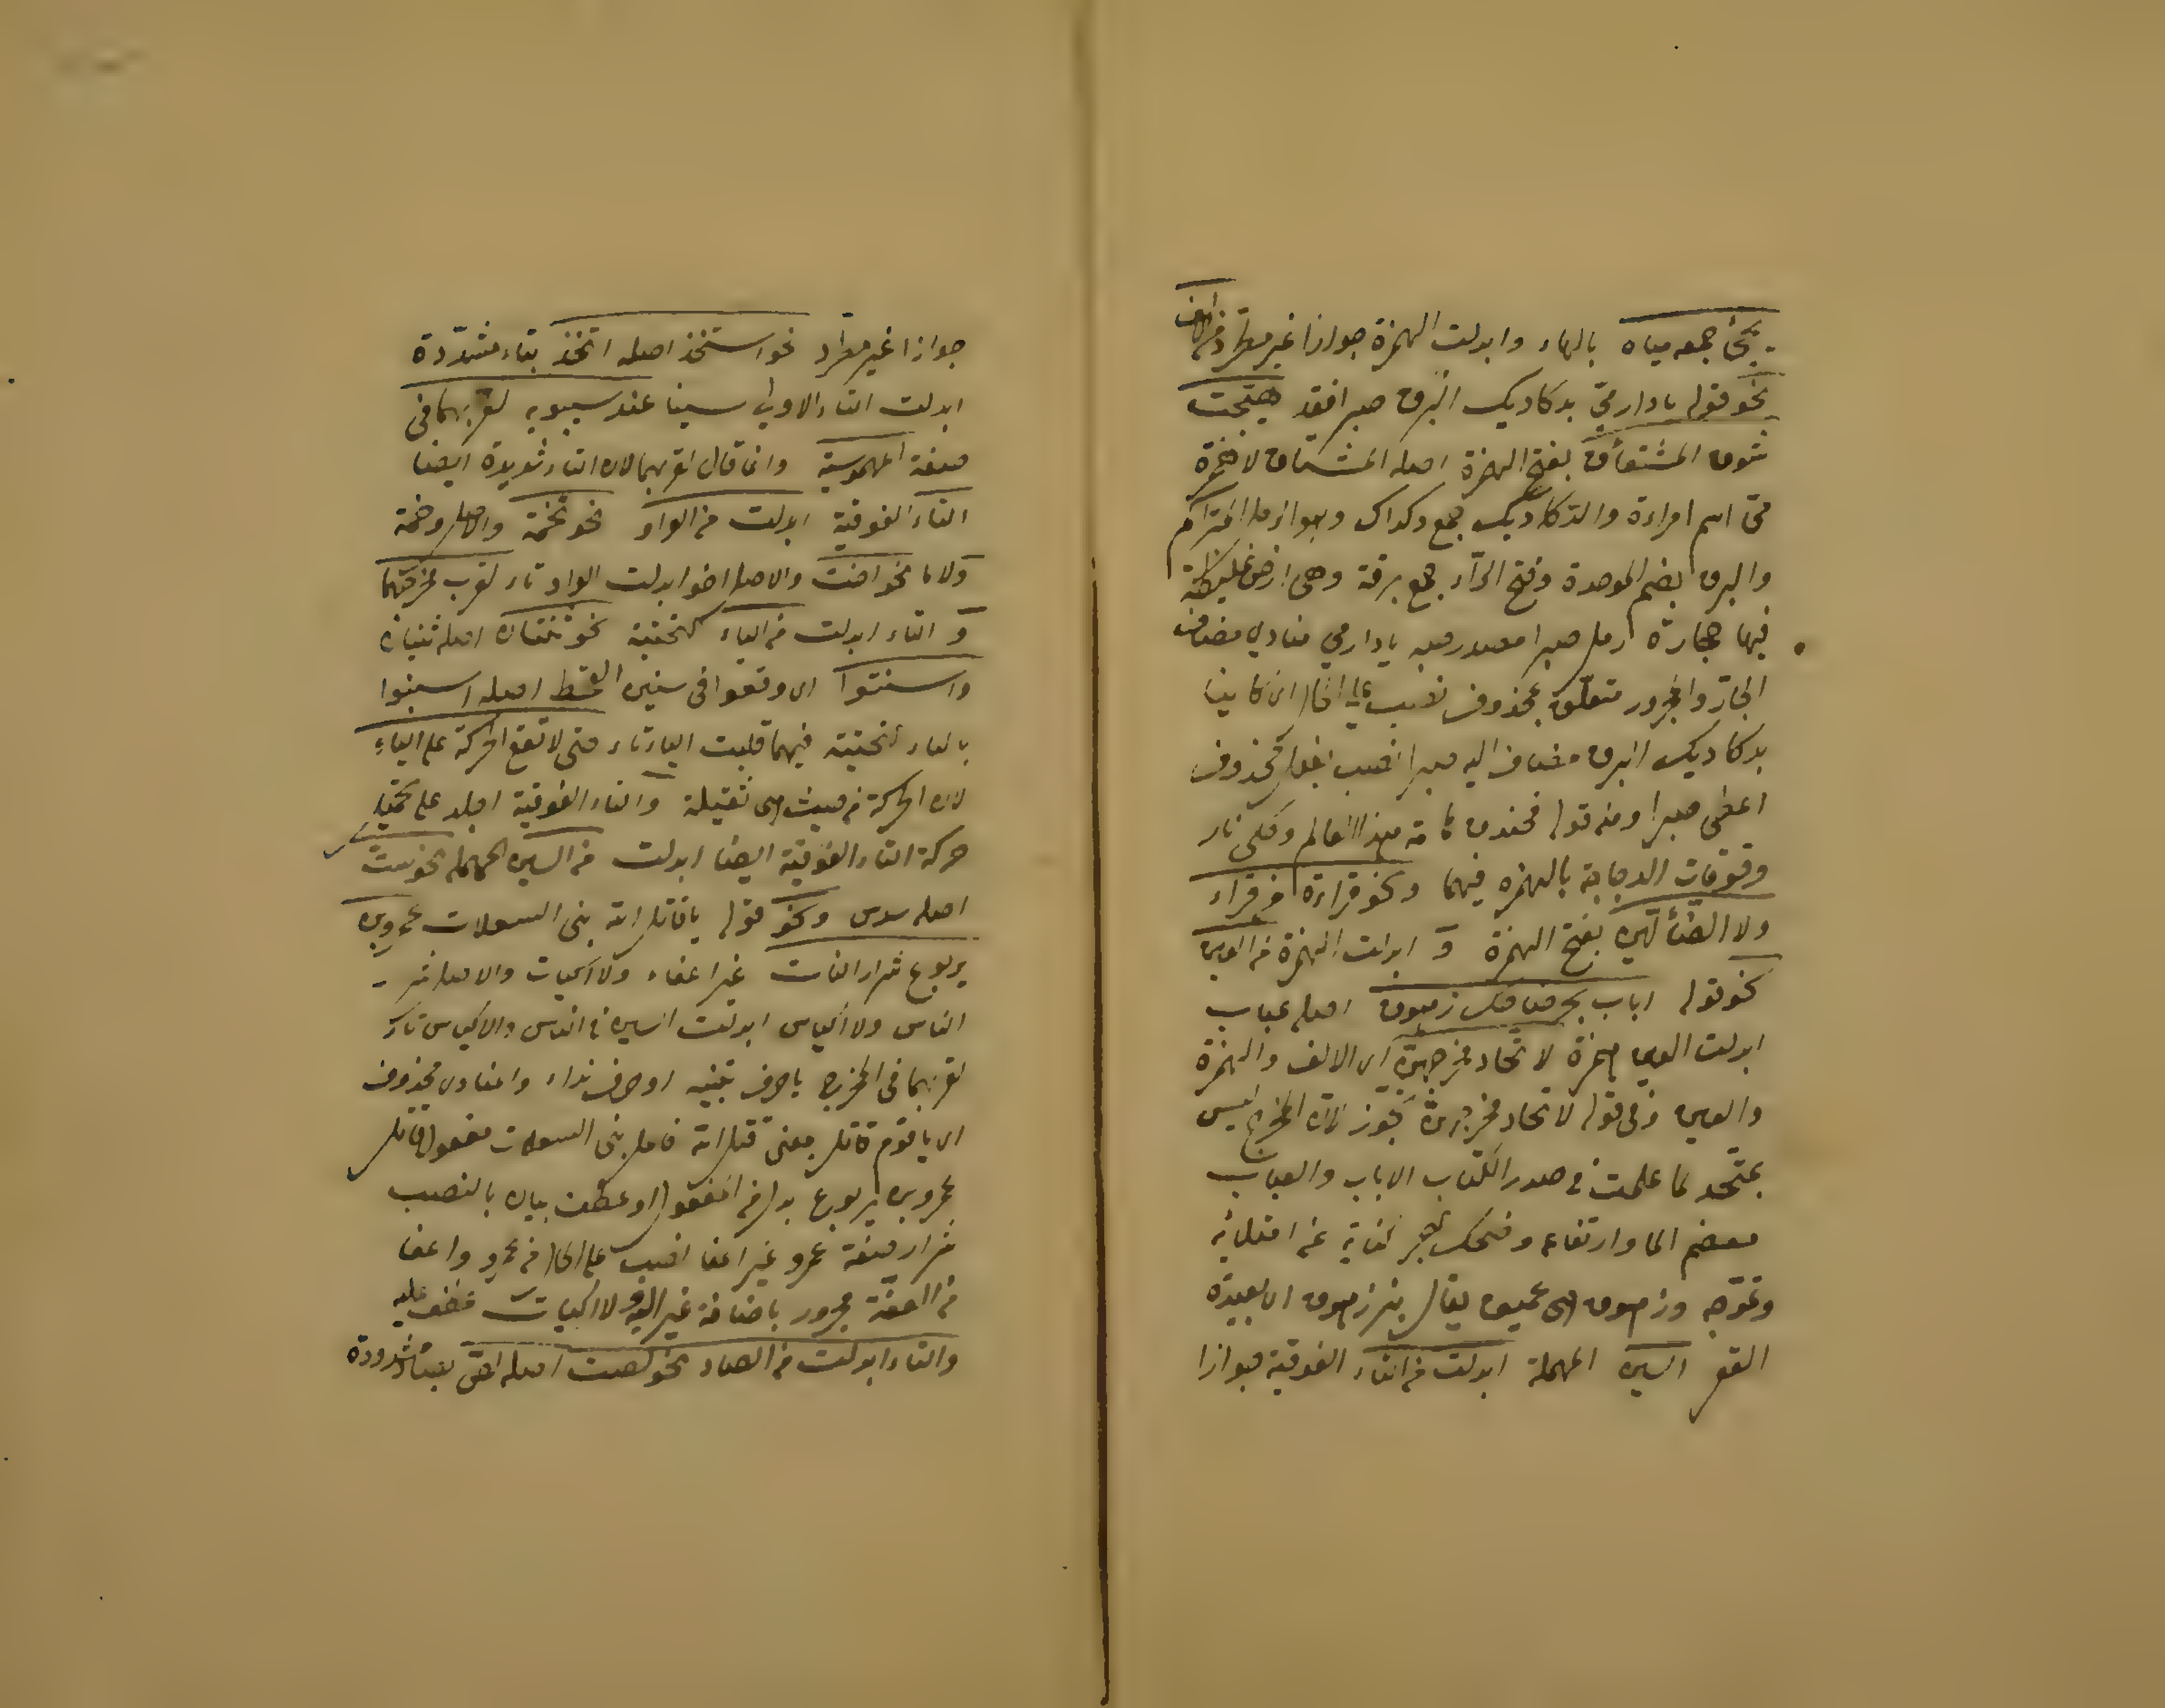 يجئ جمعه مياه بالهاء وابدلت الهمزة جوازا غير مطرد من الالف
نحو قوله يا دار ميّ بدكاديك البرق صبرا فقد هيّجت
شوق المشتئق بفتح الهمزة اصله المشتاق لا همزة
ميّ اسم امراءة والدّكاديك جمع دكداك وهو الرمل المتراكم
والبرق بضم الموحدة وفتح الرّاء جمع برقة وهى ارض غليظة
فيها حجارة رمل صبرا مصدر صبر يا دار مي منادي مضاف
الجار والمجرور متعلق بمحذوف نصب على الحال اى كاينا
بدكاديك البرق مضاف اليه صبرا نصب بفعل محذوف
اعطى صبرا ومنه قوله فخندف هامة هذا العالم وحكى نار
وقوقات الدجاجة بالهمزه فيهما ونحو قراءة من قراء
ولا الضّألّين بفتح الهمزة و ابدلت الهمزة من العين
نحو قوله اباب بحر ضاحك زهوق اصله عباب
ابدلت العين همزة لاتحاد مخرجهنّ اى الالف والهمزة
والعين وفى قوله لاتحاد مخرجهن تجوّز لان المخرج ليس
بمتحد لما علمت فى صدر الكتاب الاباب والعباب
معضم الما وارتفاعه وضحك البحر كناية عن امتلائه
وتموّجه وزهوق اى عميق يقال بئر زهوق اى بعيدة
القعر السين المهملة ابدلت من التاء الفوقية جوازا
جوازا غير مطراد نحو استخذ اصله اتخذ بتاء مشدّدة
ابدلت التاء الاولى سينا عند سيبويه لقربهما فى
صفة المهموسية وانما قال لقربهما لان التاء شديدة ايضا
التاء الفوقية ابدلت من الواو نحو تخمة والاصل وخمة
ولاما نحو اخت والاصل اخو ابدلت الواو تاء لقرب مخرجهما
و التاء ابدلت من الياء التحتية نحو ثنتان اصله ثنيان
واسنتوا اى وقعوا فى سنين القحط اصله اسنيوا
بالياء التحتية فيهما قلبت الياء تاء حتى لا تقع الحركة على الياء
لان الحركة من حيث هى ثقيلة والتاء الفوقية اجلد على تحمّل
حركة التاء الفوقية ايضا ابدلت من السين المهملة نحو ست
اصله سدس ونحو قوله يا قاتل الله بنى السعلات عمروبن
يربوع شرار النات غير اعفاء ولا اكيات والاصل شر
الناس ولا اكياس ابدلت السين فى الناس والاكياس تاء
لقربهما فى المخرج يا حرف تنبيه او حرف نداء والمنادى محذوف
اى يا قوم قاتل بمعنى قتل الله فاعل بنى السعلات مفعول قاتل
عمروبن يربوع بدل من المفعول او عطف بيان بالنصب
شرار صفة عمرو غير اعفا نصب على الحال من عمرو واعفا
من العفّة مجرور باضافة غير اليه ولا اكيات عطف عليه
والتاء ابدلت من الصاد نحو لصت اصله لصّ بصاد مشدودة